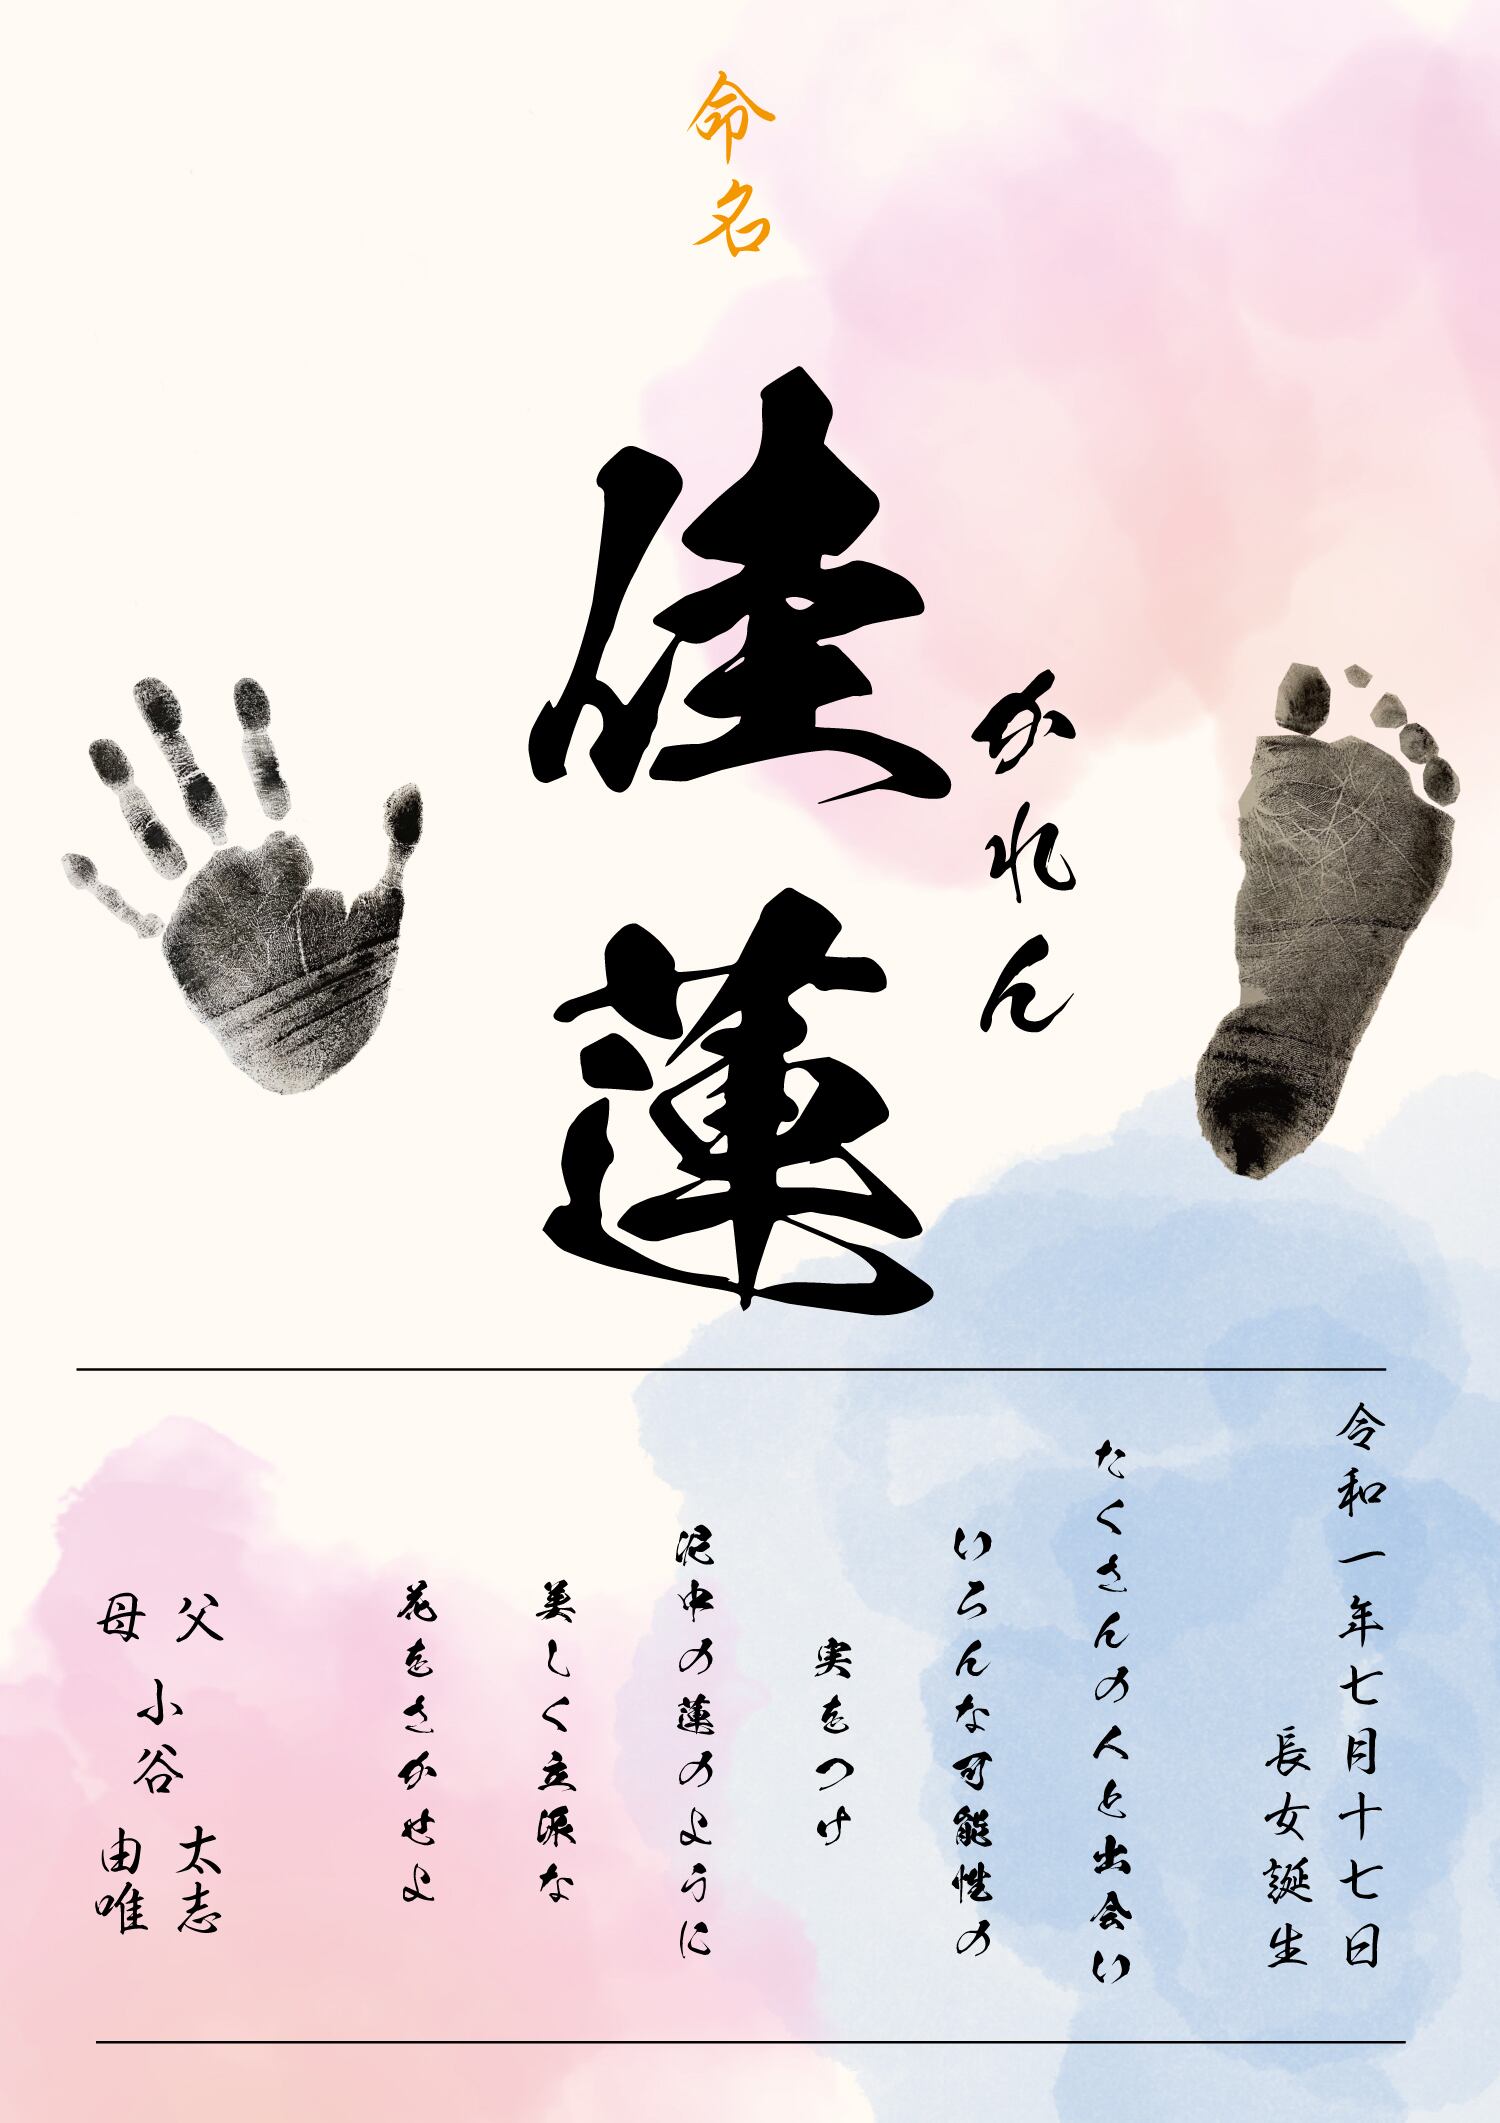 命名
佳蓮
かれん
令和一年七月十七日
長女誕生
たくさんの人と出会い
いろんな可能性の
実をつけ
泥中の蓮のように
美しく立派な
花をさかせよ
父 太志
小谷
母 由唯